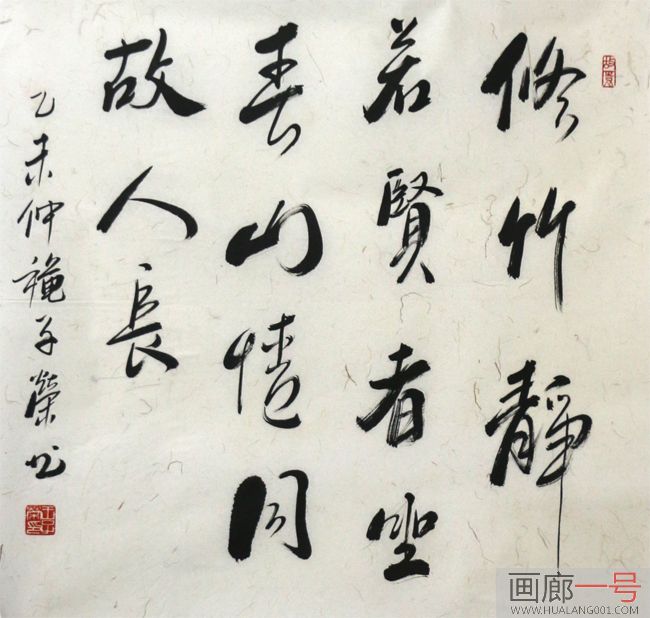 修竹靜
若賢者坐
春山情同
故人長
乙未仲龝子榮书
画廊一号
WWW.HUALANG001.COM